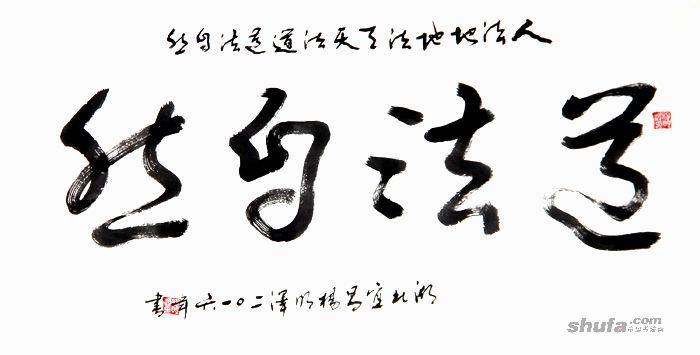 人法地地法天天法道道法自然
道法自然
湖北宜昌楊明澤二〇一六年書
shufa.com